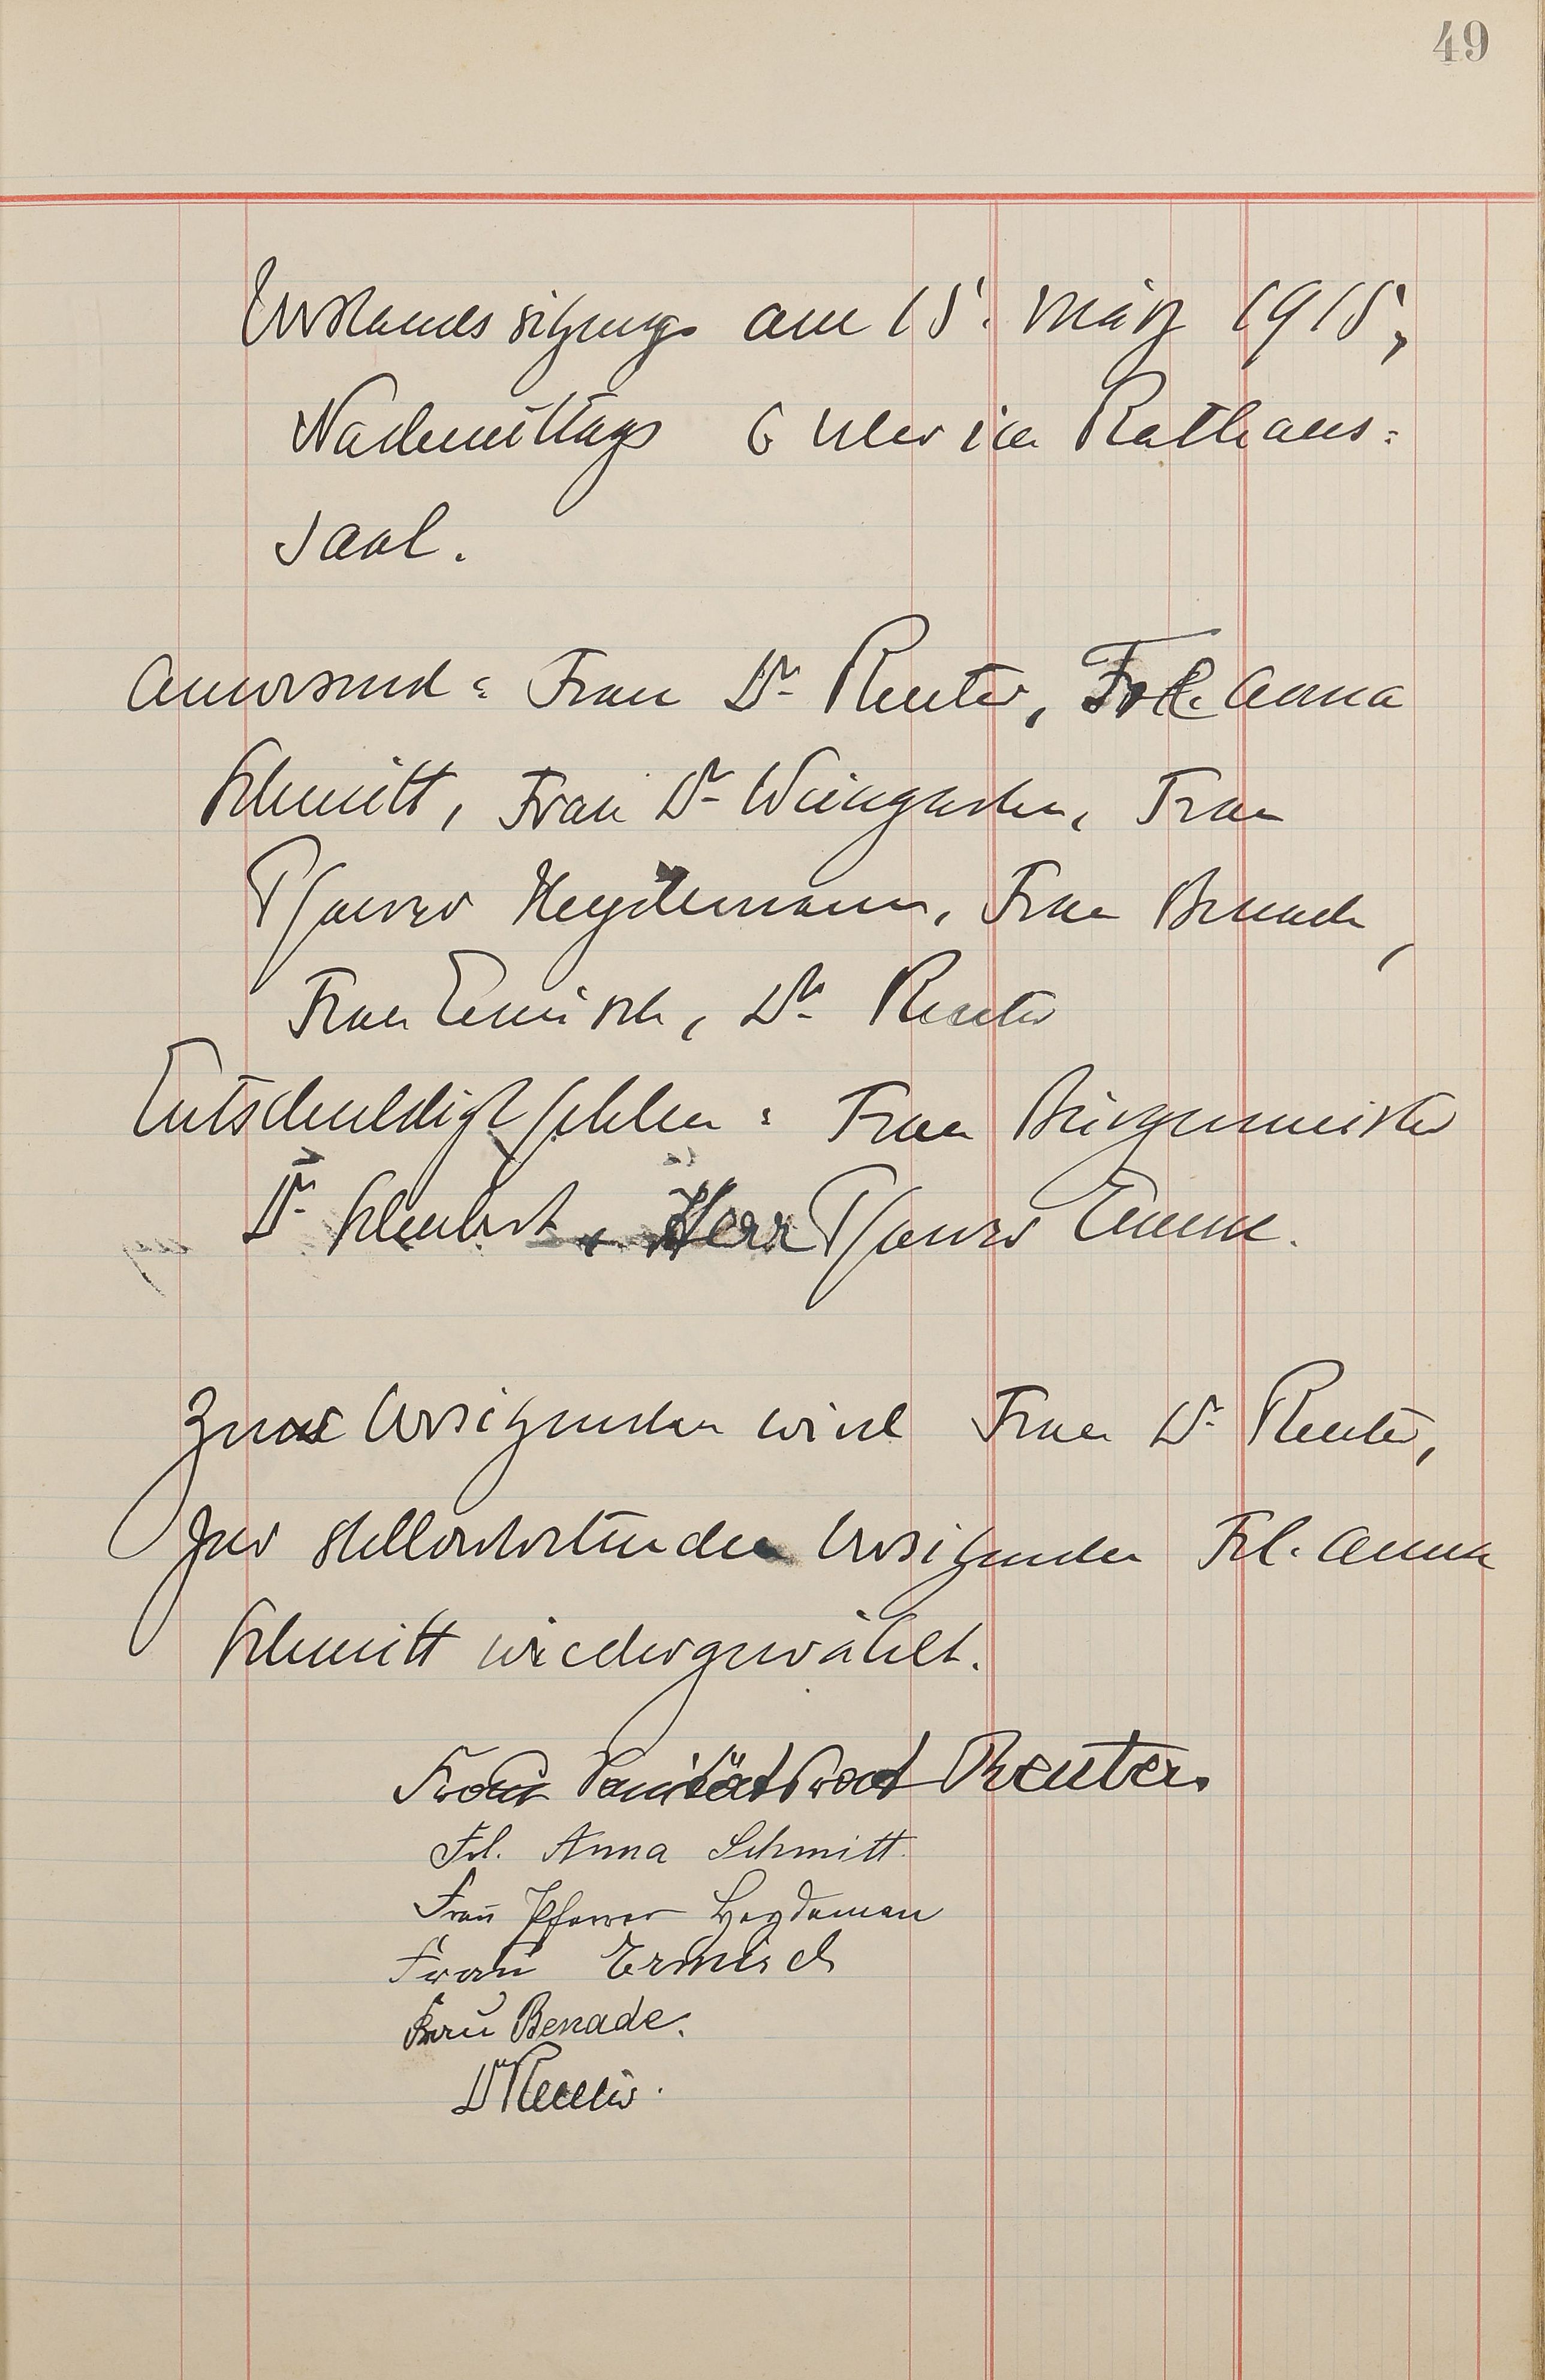 49
Vorstandssitzung am 15. März 1915,
Nachmittags 6 Uhr im Rathaus=
saal.
Anwesend: Frau Dr. Reuter, Frl. Anna
Schmitt, Frau Dr. Weingarten, Frau
Pfarrer Heydemann, Frau Benade,
Frau Ermisch, Dr. Reuter
Entschuldigt fehlen: Frau Bürgermeister
Dr. Herr Pfarrer
Zur Vorsitzenden wird Frau Dr. Reuter,
zur stellvertretenden Vorsitzenden Frl. Anna
Schmitt wiedergewählt.
Frau Sanitätsrat Reuter.
Frl. Anna Schmitt.
Frau Pfarrer Heydeman
Frau Ermisch
Frau Benade.
Dr Reuter.